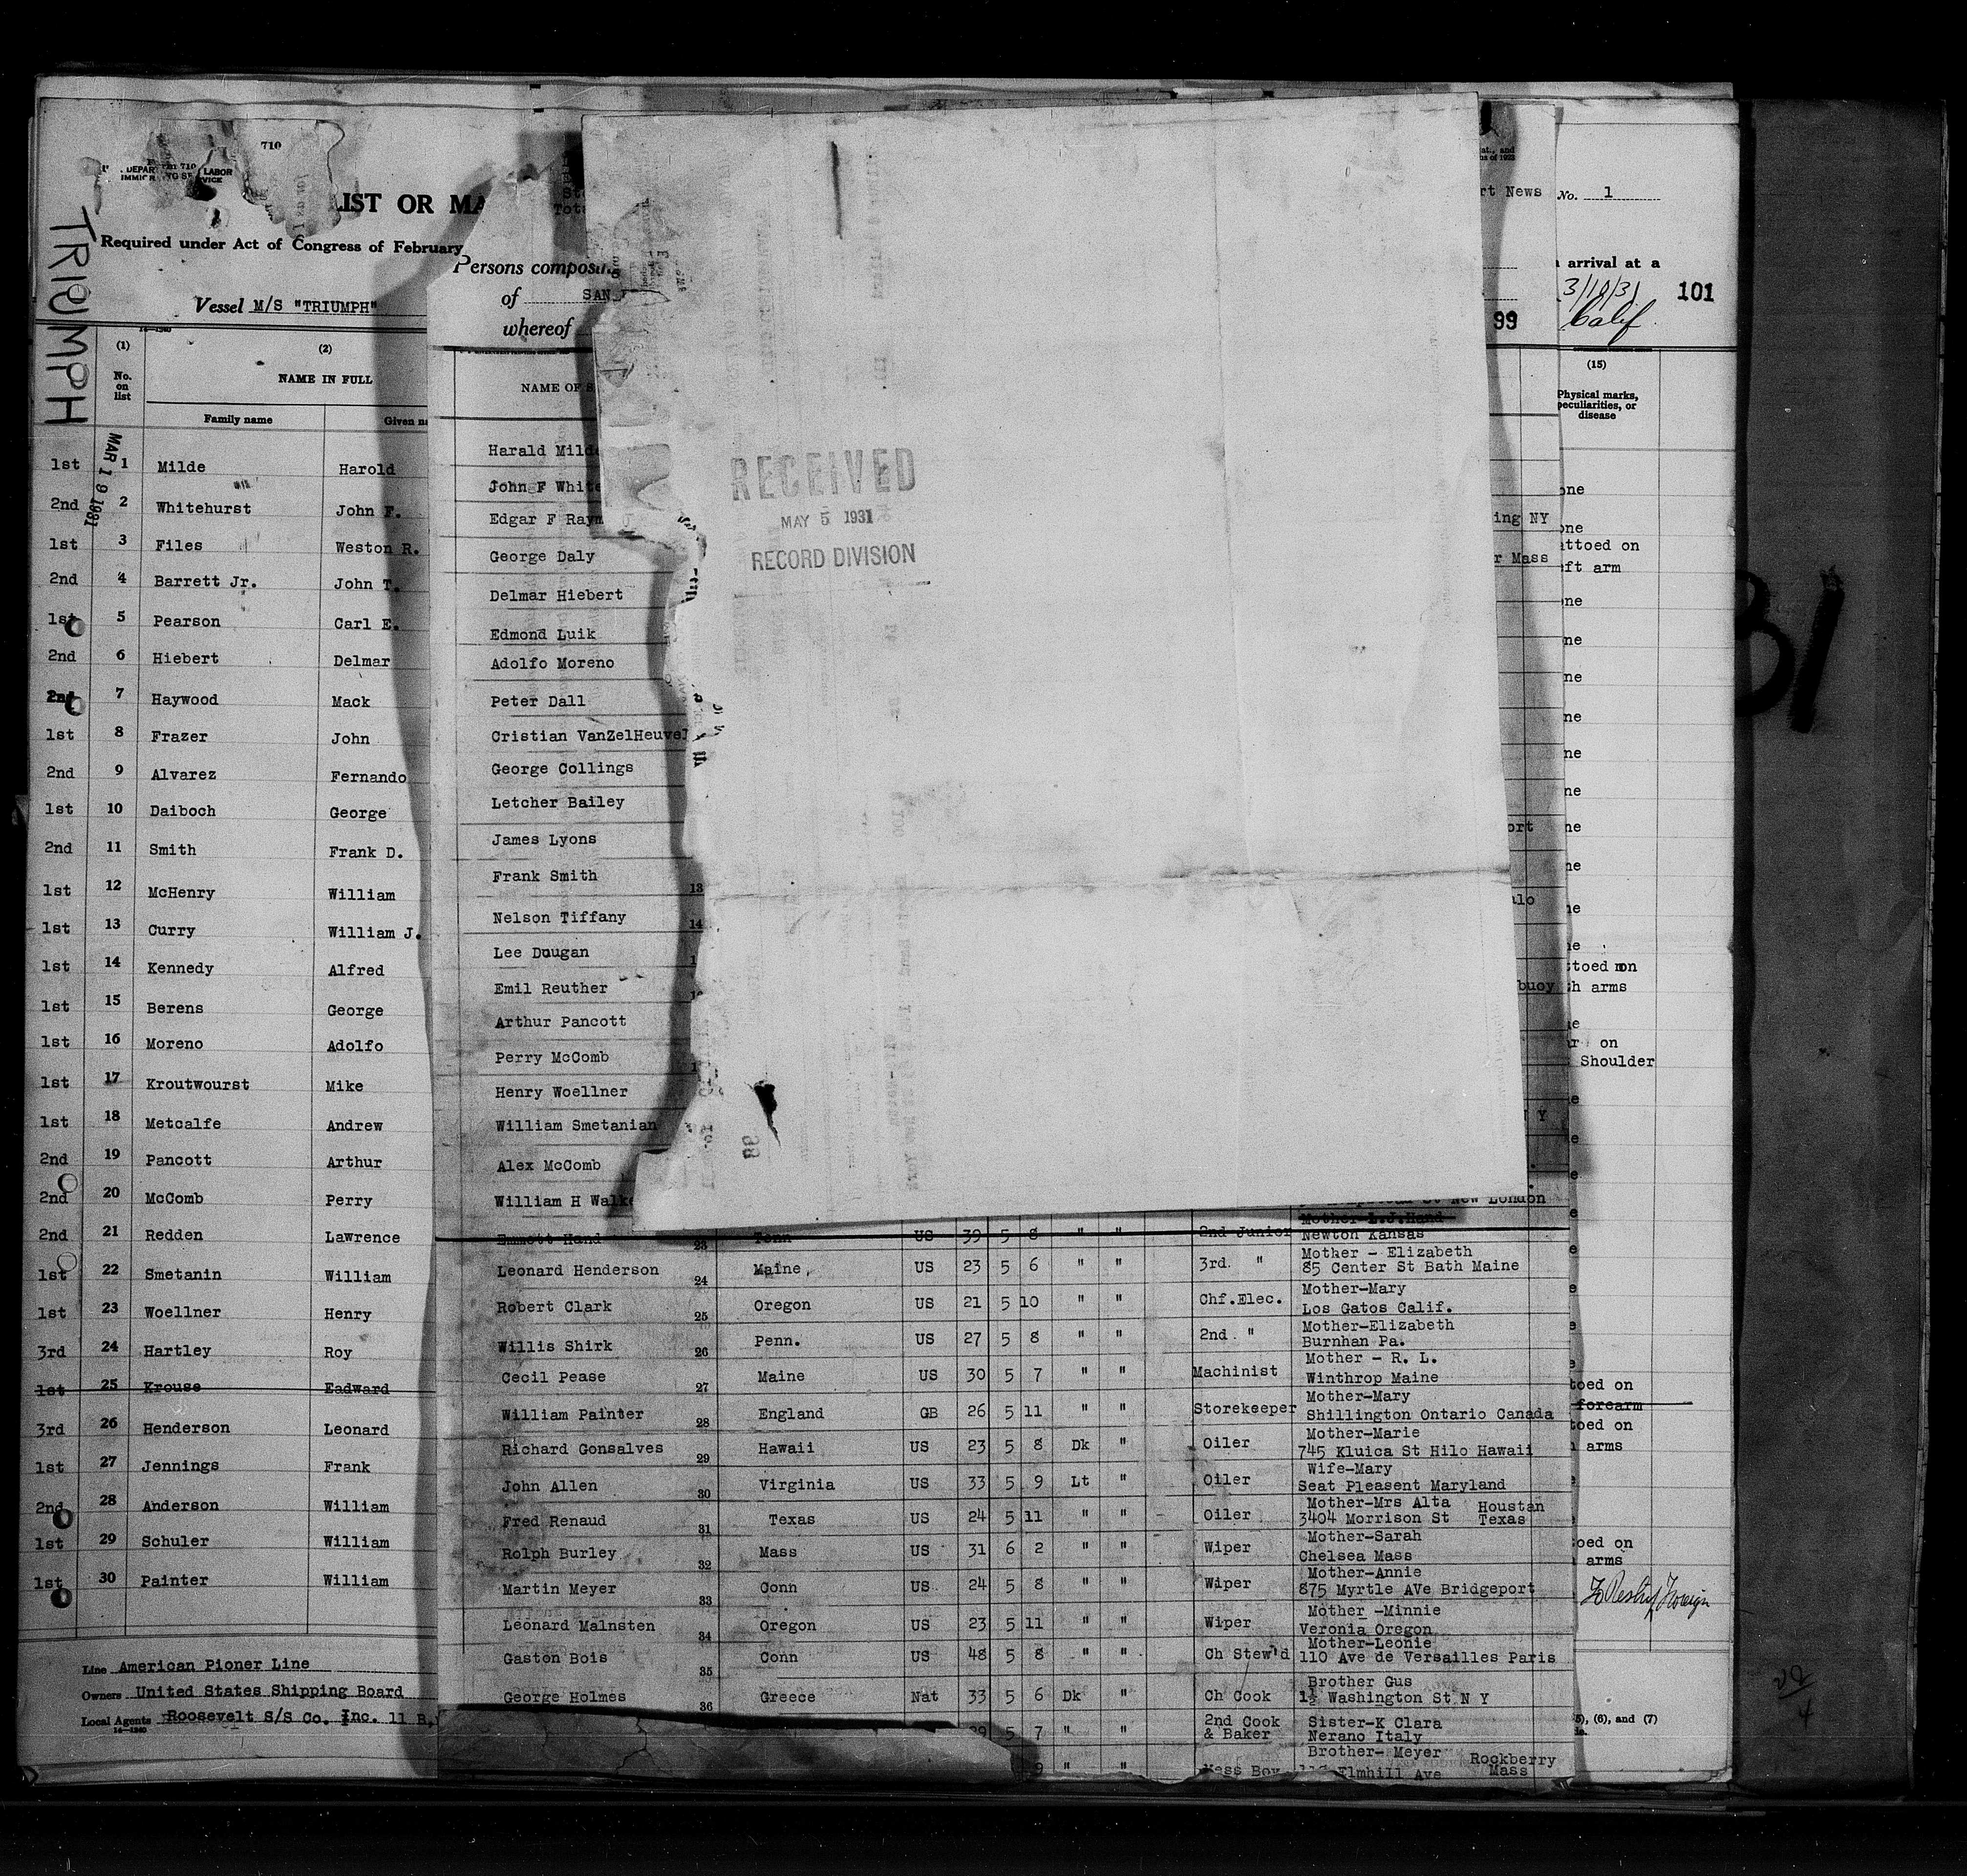 710
LABOR
LIST OR MA
Required under Act of Congress of February
Vessel M/S "TRIUMPH"
TRIUMPH
MAR 19 1931
(1) (2)
No. on list
NAME IN FULL
Family name Given na
1st 1 Milde Harold
2nd 2 Whitehurst John F.
1st 3 Files Weston R.
2nd 4 Barrett Jr. John T.
1st 5 Pearson Carl E.
2nd 6 Hiebert Delmar
2nd 7 Haywood Mack
1st 8 Frazer John
2nd 9 Alvarez Fernando
1st 10 Daiboch George
2nd 11 Smith Frank D.
1st 12 McHenry William
1st 13 Curry William J.
1st 14 Kennedy Alfred
1st 15 Berens George
1st 16 Moreno Adolfo
1st 17 Kroutwourst Mike
1st 18 Metcalfe Andrew
2nd 19 Pancott Arthur
2nd 20 McComb Perry
2nd 21 Redden Lawrence
1st 22 Smetanin William
1st 23 Woellner Henry
3rd 24 Hartley Roy
1st 25 Krouse Eadward
3rd 26 Henderson Leonard
1st 27 Jennings Frank
2nd 28 Anderson William
1st 29 Schuler William
1st 30 Painter William
Line American Pioner Line
Owners United States Shipping Board
Local Agents Roosevelt S/S Co. Inc. 11 B,
Persons composing
of SAN
whereof
NAME OF S
Harald Milde
John F White
Edgar F Raym
George Daly
Delmar Hiebert
Edmond Luik
Adolfo Moreno
Peter Dall
Cristian VanZelHeuvel
George Collings
Letcher Bailey
James Lyons
Frank Smith 13
Nelson Tiffany 14
Lee Dougan
Emil Reuther
Arthur Pancott
Perry McComb
Henry Woellner
William Smetanian
Alex McComb
William H Walke
New London
Mother L.J.Hand
Emmett Hand 23 Tenn US 39 5 8 " " 2nd Junior Newton Kansas
Mother - Elizabeth
Leonard Henderson 24 Maine, US 23 5 6 " " 3rd. " 85 Center St Bath Maine
Mother-Mary
Robert Clark 25 Oregon US 21 5 10 " " Chf.Elec. Los Gatos Calif.
Mother-Elizabeth
Willis Shirk 26 Penn. US 27 5 8 " " 2nd. " Burnhan Pa.
Mother - R. L.
Cecil Pease 27 Maine US 30 5 7 " " Machinist Winthrop Maine
Mother-Mary
William Painter 28 England GB 26 5 11 " " Storekeeper Shillington Ontario Canada
Mother-Marie
Richard Gonsalves 29 Hawaii US 23 5 8 Dk " Oiler 745 Kluica St Hilo Hawaii
Wife-Mary
John Allen 30 Virginia US 33 5 9 Lt " Oiler Seat Pleasent Maryland
Mother-Mrs Alta Houstan
Fred Renaud 31 Texas US 24 5 11 " " Oiler 3404 Morrison St Texas
Mother-Sarah
Rolph Burley 32 Mass US 31 6 2 " " Wiper Chelsea Mass
Mother-Annie
Martin Meyer 33 Conn US 24 5 8 " " Wiper 875 Myrtle AVe Bridgeport
Mother -Minnie
Leonard Malnsten 34 Oregon US 23 5 11 " " Wiper Veronia Oregon
Mother-Leonie
Gaston Bois 35 Conn US 48 5 8 " " Ch Stew'd 110 Ave de Versailles Paris
Brother Gus
George Holmes 36 Greece Nat 33 5 6 Dk " Ch Cook 1½ Washington St N Y
2nd Cook Sister-K Clara
5 7 " " & Baker Nerano Italy
Brother- Meyer Rockberry
9 " " Mess Boy Elmhill Ave Mass
RECEIVED
MAY 5 1931
RECORD DIVISION
98
rt News
99
ing NY
r Mass
ort
alo
buoy
N Y
No. 1
arrival at a
3/10/31
Calif.
101
(15)
Physical marks, peculiarities, or disease
one
one
attoed on
eft arm
one
ne
ne
ne
ne
ne
ne
ne
ne
ne
ttoed on
h arms
ne
on
Shoulder
toed on
forearm
toed on
arms
oed on
arms
5), (6), and (7)
31